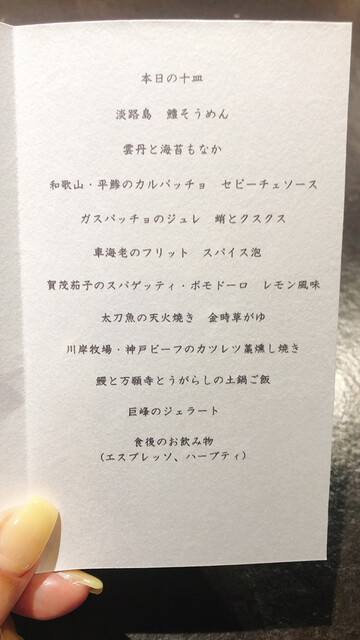 本日の十皿
淡路島　鱧そうめん
雲丹と海苔もなか
和歌山・平鯵のカルパッチョ　セビーチェソース
ガスパッチョのジュレ　蛸とクスクス
車海老のフリット　スパイス泡
賀茂茄子のスパゲッティ・ポモドーロ　レモン風味
太刀魚の天火焼き　金時草がゆ
川岸牧場・神戸ビーフのカツレツ藁燻し焼き
鰻と万願寺とうがらしの土鍋ご飯
巨峰のジェラート
食後のお飲み物
（エスプレッソ、ハーブティ）